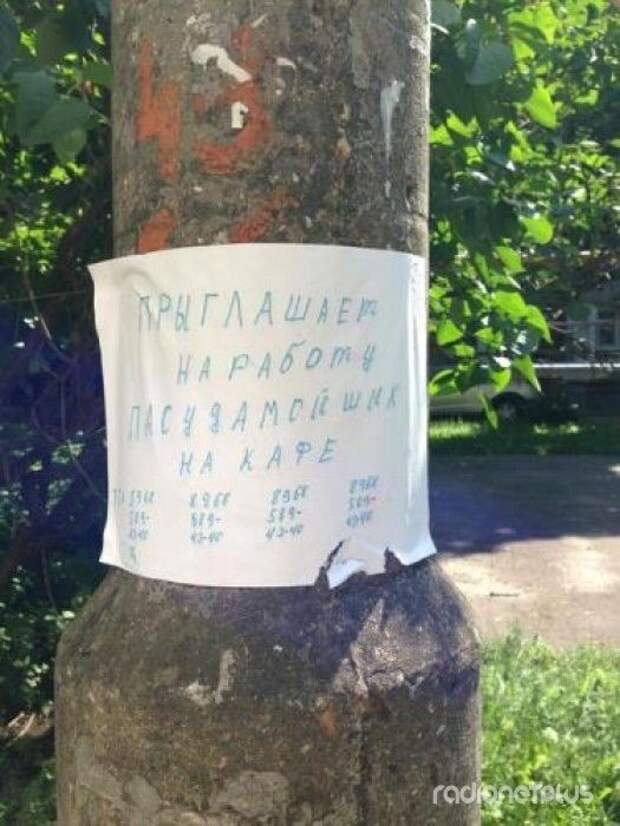 ПРЫГЛАШАЕт
НА РАБОТУ
ПАСУДАМОЙ ШИК
НА КАФЕ
8968 8968 8968 8968
589- 589- 589- 589-
42-40 42-40 42-40 42-40
radionetplus